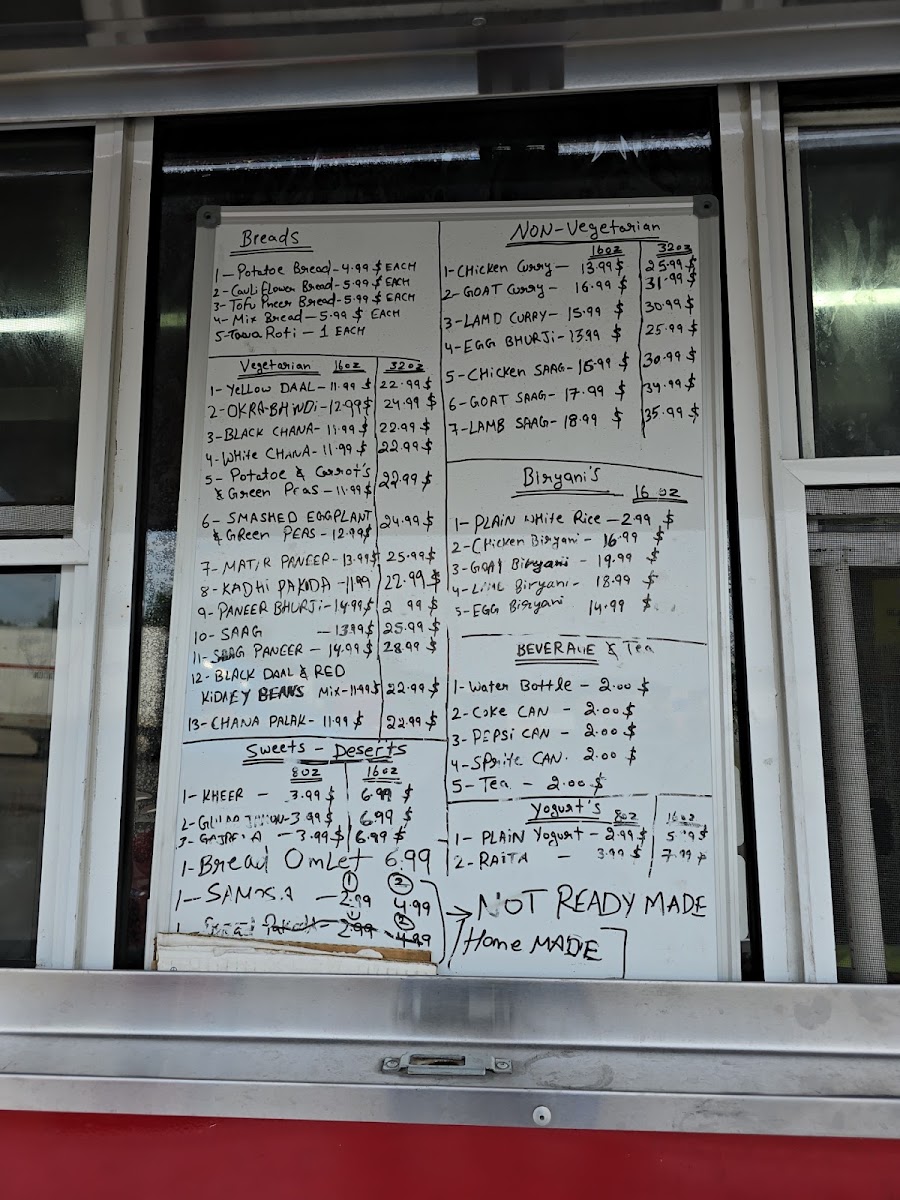 Breads
1-Potatoe Bread-4.99 $ EACH
2-Cauliflower Bread-5.99 $ EACH
3-Tofu Pneer Bread-5.99 $ EACH
4-Mix Bread-5.99 $ EACH
5-Tawa Roti - 1 EACH
Vegetarian 16oz 32oz
1-YELLOW DAAL-11.99 $ 22.99 $
2-OKRA-BHINDI-12.99$ 24.99 $
3-BLACK CHANA-11.99$ 22.99 $
4-WHITE CHANA-11.99 $ 22.99 $
5- Potatoe & Carrot's
& Green Peas-11.99$ 22.99 $
6- SMASHED EGGPLANT
& GReen PEAS-12.99$ 24.99 $
7-MATAR PANEER-13.99$ 25.99 $
8-KADHI PAKODA-11.99 22.99 $
9-PANEER BHURJI-14.99$ 2 99 $
10-SAAG -13.99$ 25.99 $
11-SAAG PANEER-14.99$ 28.99 $
12-BLACK DAAL & RED
KIDNEY BEANS Mix-11.99$ 22.99 $
13-CHANA PALAK-11.99 $ 22.99 $
Sweets - Deserts
8oz 16oz
1-KHEER - 3.99 $ 6.99 $
2- -3.99 $ 6.99 $
3- -3.99 $ 6.99 $
1-Bread Omlet 6.99
1 2
1-SAMOSA -2.99 4.99
1- -2.99 -4.99
NON-Vegetarian
16oz 32oz
1-CHicken Curry-13.99 $ 25.99 $
2-GOAT Curry-16.99 $ 31.99 $
3-LAMD CURRY-15.99 $ 30.99 $
4-EGG BHURJI-13.99 $ 25.99 $
5-CHicken SAAG-16.99 $ 30.99 $
6-GOAT SAAG-17.99 $ 34.99 $
7-LAMB SAAG-18.99 $ 35.99 $
Biryani's
16 oz
1-PLAIN White Rice-2.99 $
2-CHicken Biryani-16.99 $
3-GOAT Biryani-19.99 $
4- Biryani-18.99 $
5-EGG Biryani 14.99 $
BEVERAGE & Tea
1-Water Bottle-2.00 $
2-Coke CAN-2.00 $
3-PEPSI CAN-2.00 $
4-SPRite CAN. 2.00 $
5-Tea-2.00 $
Yogurt's 8oz 16oz
1-PLAIN Yogurt-2.99 $ 5.99 $
2-RAITA - 3.99 $ 7.99 $
NOT READY MADE
Home MADE